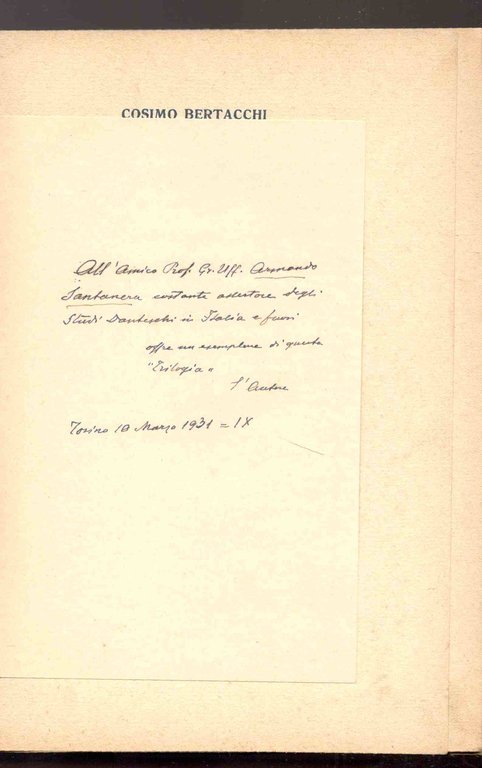 COSIMO BERTACCHI
All'Amico Prof. Gr. Uff. Armando
Santanera costante assertore degli
Studi Danteschi in Italia e fuori
offre un esemplare di questa
"Trilogia"
L'Autore
Torino 10 Marzo 1931 = IX